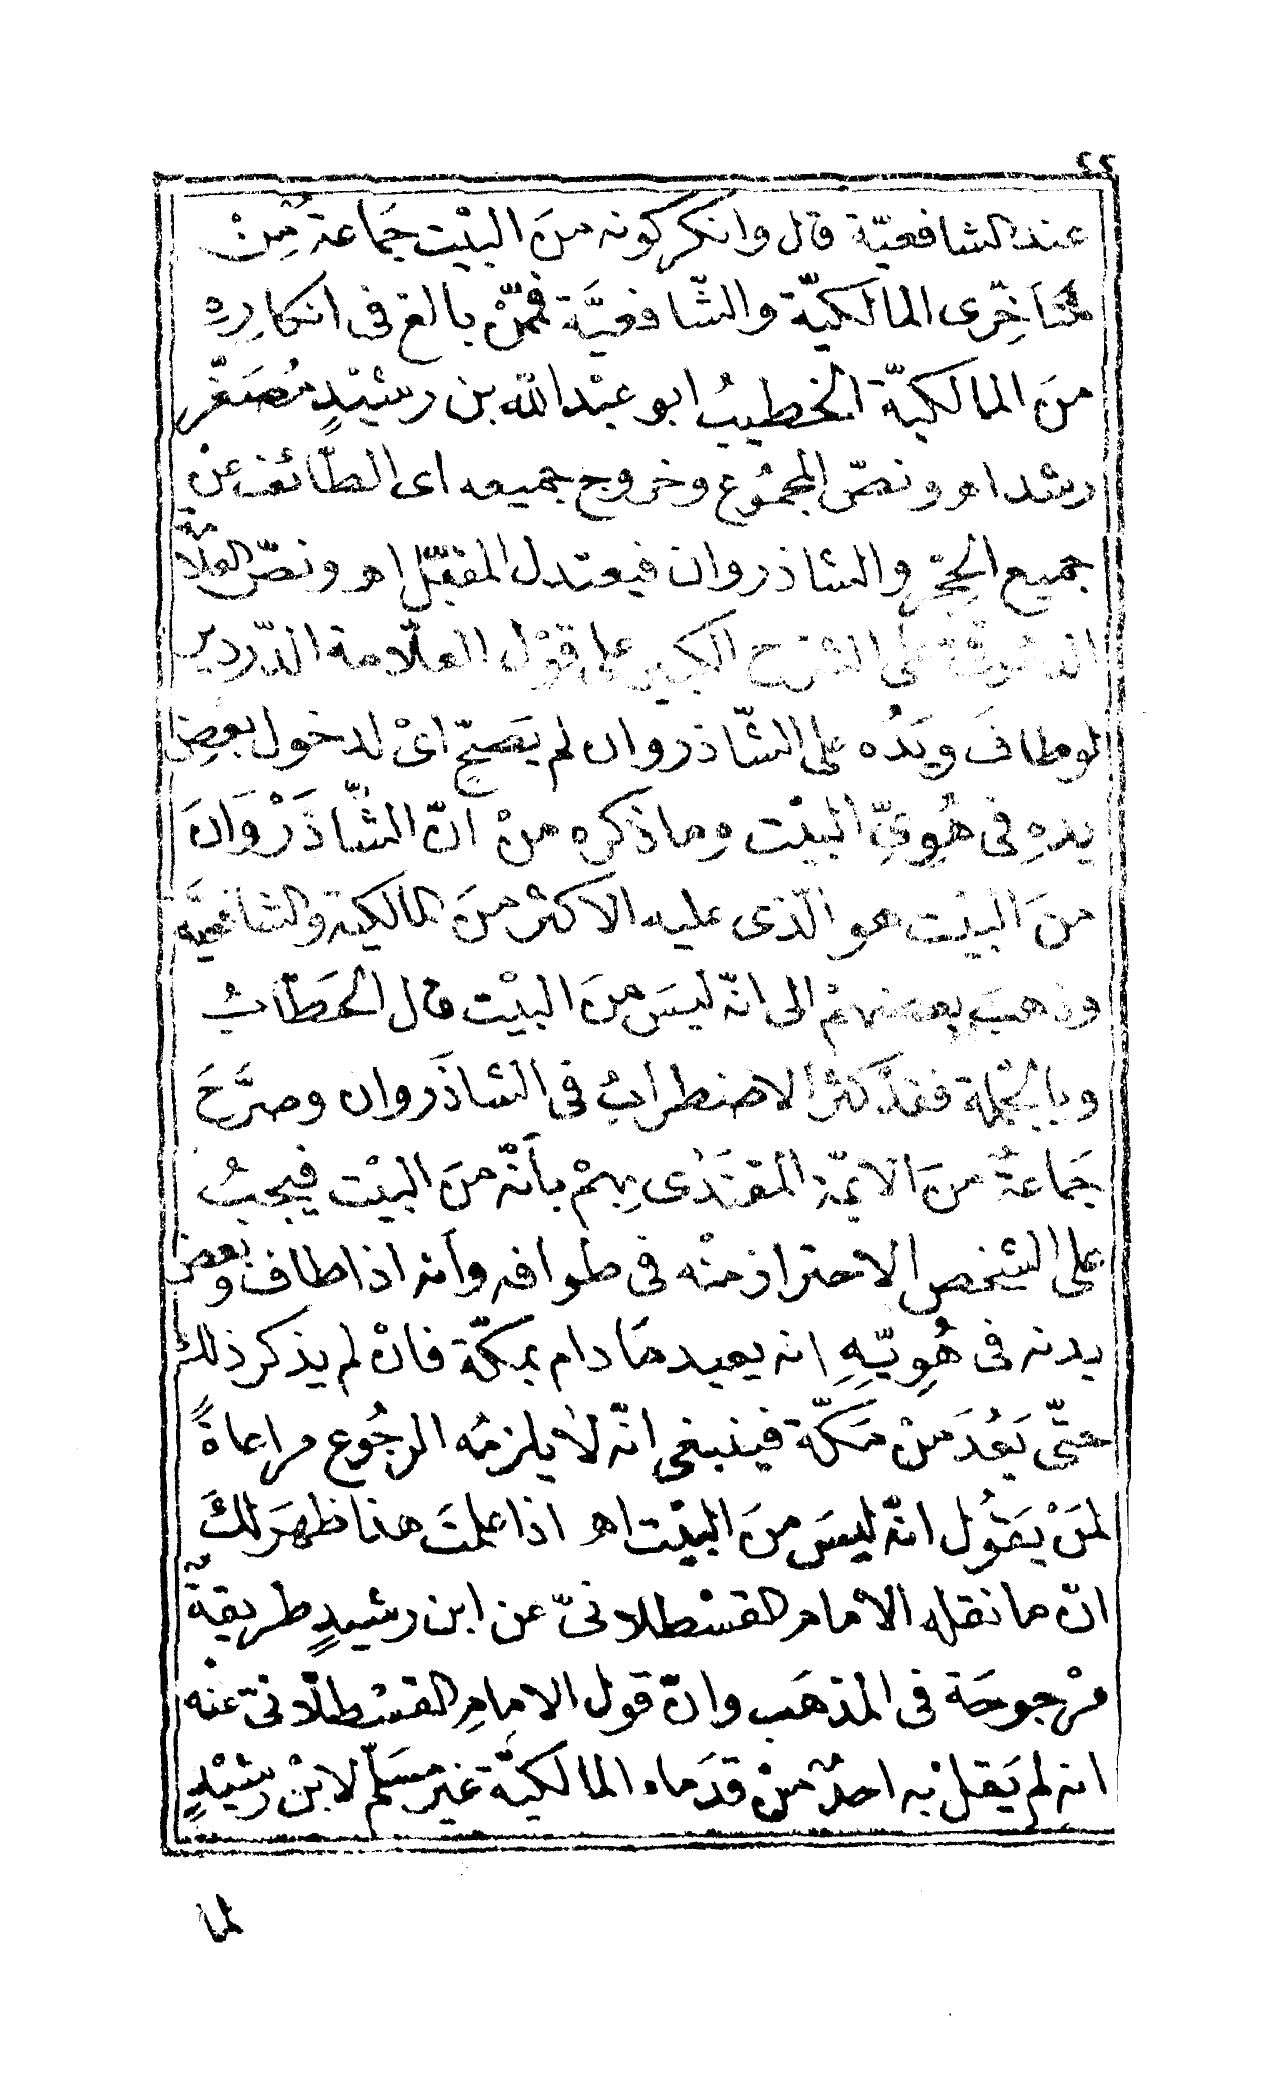 ٢٢
عند الشافعيّة قال وانكر كونه منَ البيْت جَماعةٌ مِنْ
متأخّرى المالكيّة والشّافعيَّة فممّنْ بالغ فى انكارِهِ
منَ المالكيّة الخطيبُ ابو عبْد الله بن رشيْدٍ مُصَغّر
رشد اهـ ونصّ المجمُوع وخروج جميعه اى الطّائف عنْ
جميع الحِجْرِ والشاذروان فيعتدل المقبّل اهـ ونصّ العلّامة
الدسُوقىّ على الشرْح الكبير على قوْل العلّامة الدّردير
لو طافَ ويَدُه على الشّاذروان لم يَصَحّ اىْ لدخول بعضِ
يدهِ فى هُوِىِّ البيْت وما ذكره منْ انّ الشّاذَرْوَانَ
منَ البيْت هو الّذى عليه الاكثر منَ المالكية والشافعيَّة
وذهبَ بعضهمْ الى انّه ليسَ منَ البيْت قال الحَطّابُ
وبالجُملة فقدْ كثُرَ الاضطرابُ فى الشاذَروان وصرَّحَ
جَماعةٌ منَ الائمّة المقتَدٰى بِهمْ بأنّه منَ البيْت فيجبُ
على الشخص الاحتراز منْه فى طوافه وأنه اذا طاف وبعض
بدنه فى هُوِيّهِ انه يعيد مَا دام بمكّة فانْ لم يذكر ذلك
حتّى بَعُدَ منْ مَكّة فينبغى انّه لاٰ يلزمُه الرجُوع مراعاةً
لمَنْ يَقُول انّه ليسَ منَ البيْت اهـ اذا علمْتَ هذا ظهَرَ لكَ
انّ ما نقله الامام القسْطلانىّ عن ابن رشيدٍ طريقةٌ
مرْجوحَة فى المذهَب وانّ قول الامامِ القسْطلّانىّ عنْه
انه لم يَقلْ به احدٌ منْ قدَماء المالكيّة غير مسَلّم لابْن رشيْدٍ
لما